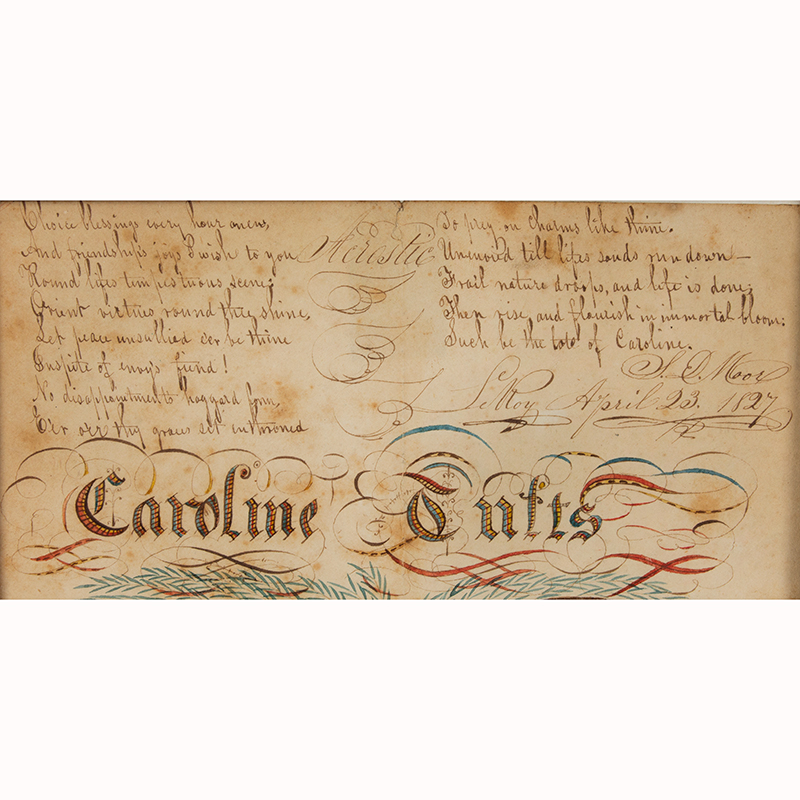 Choice blessings every hour anew,
And friendship's joys I wish to you
Round lifes tempestuous scene;
Orient virtues round they shine,
Let peace unsullied eer be thine
Inspite of envys fiend!
No disappointments haggard form,
E'er oer thy graces set enthroned
Acrostic
To prey on charms like thine.
Unmoved till lifes sands run down—
Frail nature droops, and life is done;
Then rise, and flourish in immortal bloom:
Such be the lote of Caroline.
LeRoy April 23. 1827
Caroline Tufts